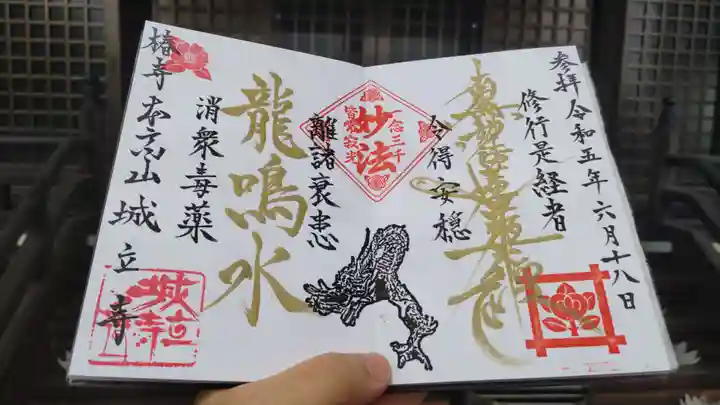 参拝 令和五年六月十八日
修行是経者
令得安穏
一念三千
妙法
離諸衰患
龍鳴水
消衆毒薬
椿寺 本高山 城立寺
城立寺